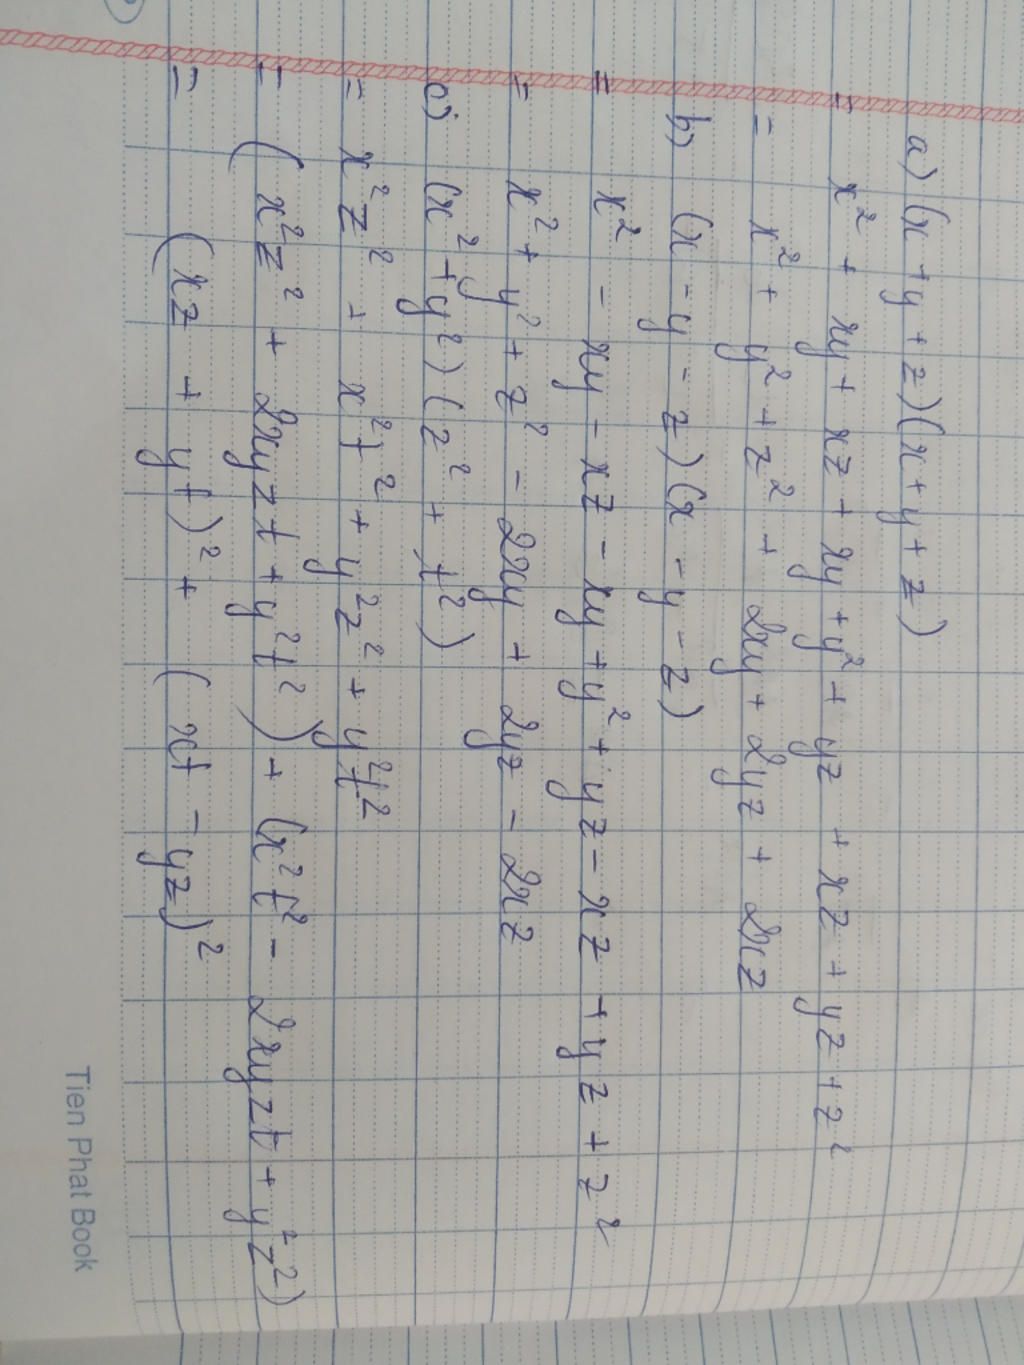 a) (x + y + z)(x + y + z)
= x² + xy + xz + xy + y² + yz + xz + yz + z²
= x² + y² + z² + 2xy + 2yz + 2xz
b) (x - y - z)(x - y - z)
= x² - xy - xz - xy + y² + yz - xz + yz + z²
= x² + y² + z² - 2xy + 2yz - 2xz
c) (x² + y²)(z² + t²)
= x²z² + x²t² + y²z² + y²t²
= (x²z² + 2xyzt + y²t²) + (x²t² - 2xyzt + y²z²)
= (xz + yt)² + (xt - yz)²
Tien Phat Book